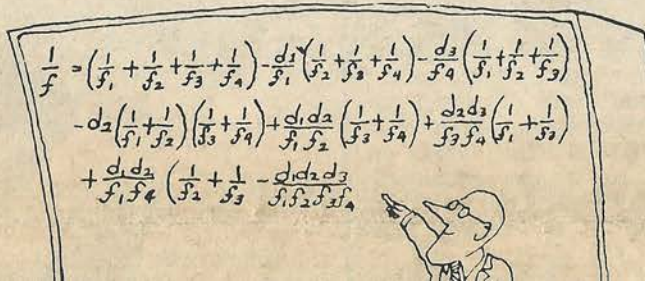 1/f = (1/f₁ + 1/f₂ + 1/f₃ + 1/f₄) - d₁/f₁ (1/f₂ + 1/f₃ + 1/f₄) - d₃/f₄ (1/f₁ + 1/f₂ + 1/f₃)
- d₂(1/f₁ + 1/f₂)(1/f₃ + 1/f₄) + d₁d₂/f₁f₂ (1/f₃ + 1/f₄) + d₂d₃/f₃f₄ (1/f₁ + 1/f₃)
+ d₁d₂/f₁f₄ (1/f₂ + 1/f₃ - d₁d₂d₃/f₁f₂f₃f₄